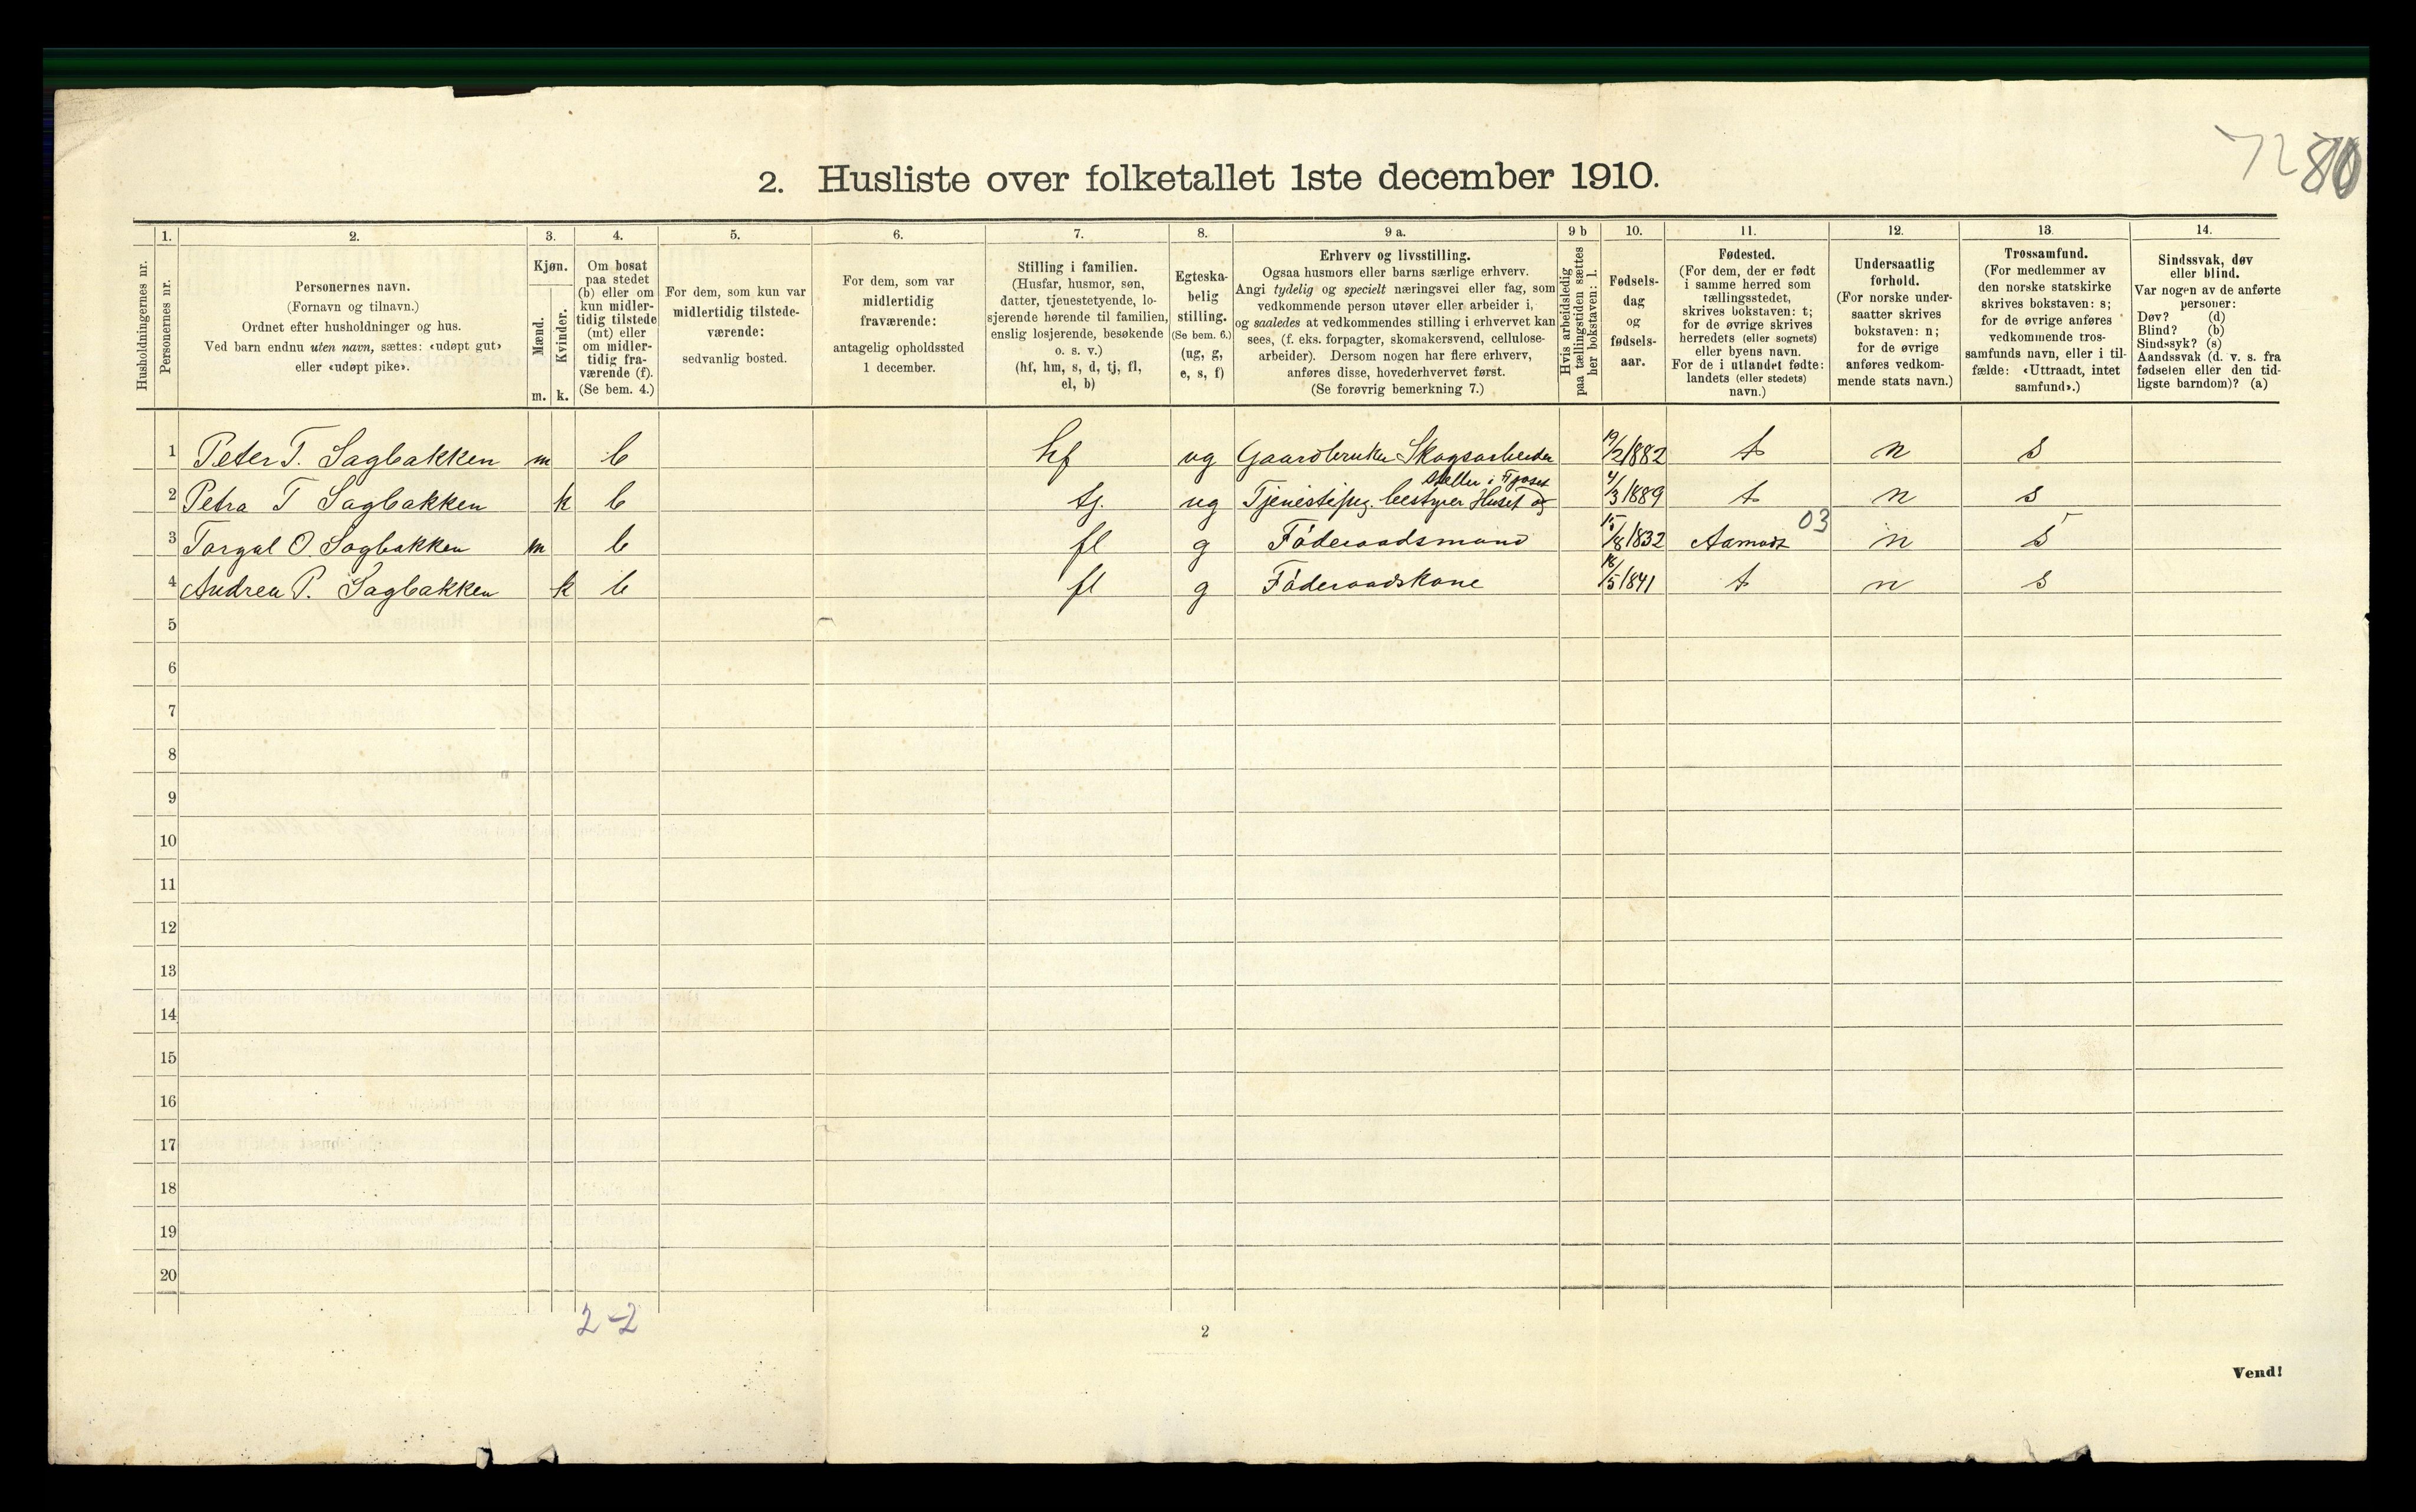 7280
2. Husliste over folketallet 1ste december 1910.
Husholdningernes nr.
1.
Personernes nr.
2.
Personernes navn.
(Fornavn og tilnavn.)
Ordnet efter husholdninger og hus.
Ved barn endnu uten navn, sættes: «udøpt gut»
eller «udøpt pike».
3.
Kjøn.
Mænd.
Kvinder.
m. k.
4.
Om bosat
paa stedet
(b) eller om
kun midler-
tidig tilstede
(mt) eller
om midler-
tidig fra-
værende (f).
(Se bem. 4.)
5.
For dem, som kun var
midlertidig tilstede-
værende:
sedvanlig bosted.
6.
For dem, som var
midlertidig
fraværende:
antagelig opholdssted
1 december.
7.
Stilling i familien.
(Husfar, husmor, søn,
datter, tjenestetyende, lo-
sjerende hørende til familien,
enslig losjerende, besøkende
o. s. v.)
(hf, hm, s, d, tj, fl,
el, b)
8.
Egteska-
belig
stilling.
(Se bem. 6.)
(ug, g,
e, s, f)
9 a.
Erhverv og livsstilling.
Ogsaa husmors eller barns særlige erhverv.
Angi tydelig og specielt næringsvei eller fag, som
vedkommende person utøver eller arbeider i,
og saaledes at vedkommendes stilling i erhvervet kan
sees, (f. eks. forpagter, skomakersvend, cellulose-
arbeider). Dersom nogen har flere erhverv,
anføres disse, hovederhvervet først.
(Se forøvrig bemerkning 7.)
9 b
Hvis arbeidsledig
paa tællingstiden sættes
her bokstaven: l.
10.
Fødsels-
dag
og
fødsels-
aar.
11.
Fødested.
(For dem, der er født
i samme herred som
tællingsstedet,
skrives bokstaven: t;
for de øvrige skrives
herredets (eller sognets)
eller byens navn.
For de i utlandet fødte:
landets (eller stedets)
navn.)
12.
Undersaatlig
forhold.
(For norske under-
saatter skrives
bokstaven: n;
for de øvrige
anføres vedkom-
mende stats navn.)
13.
Trossamfund.
(For medlemmer av
den norske statskirke
skrives bokstaven: s;
for de øvrige anføres
vedkommende tros-
samfunds navn, eller i til-
fælde: «Uttraadt, intet
samfund».)
14.
Sindssvak, døv
eller blind.
Var nogen av de anførte
personer:
Døv? (d)
Blind? (b)
Sindssyk? (s)
Aandssvak (d. v. s. fra
fødselen eller den tid-
ligste barndom)? (a)
1 Peter T. Sagbakken m b hf ug Gaardbruker Skogsarbeider 19/2 1882 t n s
steller i Fjøset
2 Petra T Sagbakken k b tj. ug Tjenestepig. bestyrer Huset og 4/3 1889 t n s
03
3 Torgal O. Sagbakken m b fl g Føderaadsmand 15/8 1832 Aamodt n s
4 Andrea P. Sagbakken k b fl g Føderaadskone 16/5 1841 t n s
5
6
7
8
9
10
11
12
13
14
15
16
17
18
19
20
2-2
2
Vend!